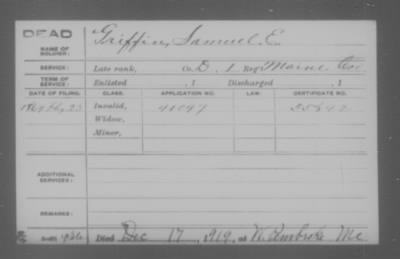 DEAD
NAME OF SOLDIER: Griffin, Samuel E.
SERVICE: Late rank, Co. D. 1 Reg't Maine Cav.
TERM OF SERVICE: Enlisted , 1 Discharged , 1
DATE OF FILING. CLASS. APPLICATION NO. LAW. CERTIFICATE NO.
1864 23 Invalid, 41097
Widow,
Minor,
ADDITIONAL SERVICES:
REMARKS:
Died Dec 17, 1919, at W. Pembroke Me